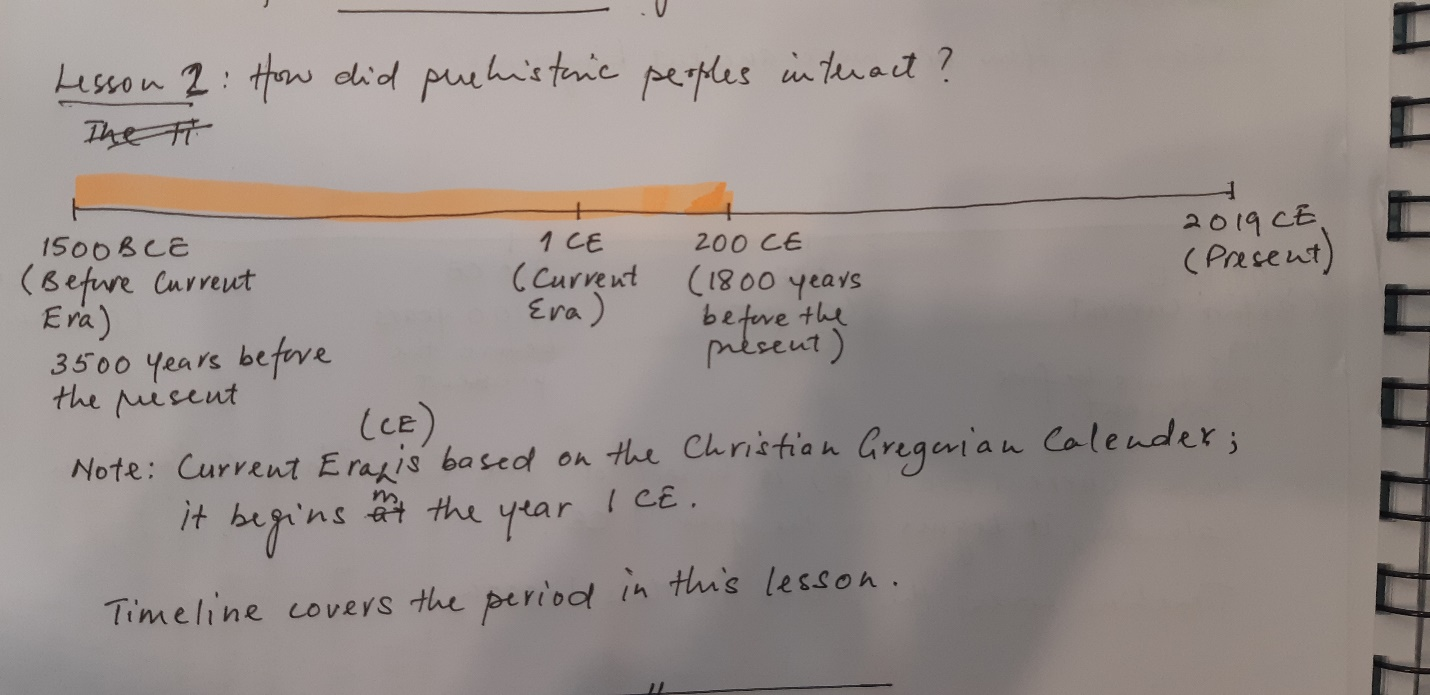 Lesson 2: How did prehistoric peoples interact?
The Ti
1500 BCE
(Before Current
Era)
3500 years before
the present
1 CE
(Current
Era)
200 CE
(1800 years
before the
present)
2019 CE
(Present)
(CE)
Note: Current Era is based on the Christian Gregorian Calender;
it begins at in the year 1 CE.
Timeline covers the period in this lesson.